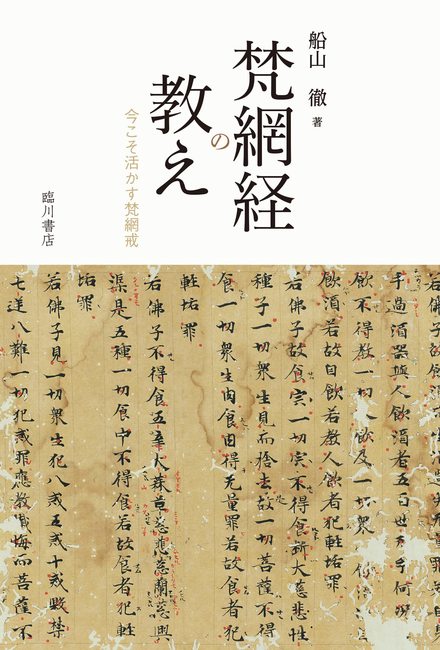 船山 徹 著
梵網経の
教え
今こそ活かす梵網戒
臨川書店
若佛子故飲酒
手過酒器與人飲酒者五百世无手何況
飲不得教一切人飲及一切衆
飲酒若故自飲若教人飲者犯軽垢罪
若佛子故食宍一切宍不得食断大慈悲性
種子一切衆生見而捨去故一切菩薩不得
食一切衆生肉食肉得无量罪若故食者犯
軽垢罪
若佛子不得食五辛大蒜革葱慈葱蘭葱興
渠是五種一切食中不得食若故食者犯軽
垢罪
若佛子見一切衆生犯八戒五戒十戒毀禁
七逆八難一切犯戒罪應教懺悔而菩薩不